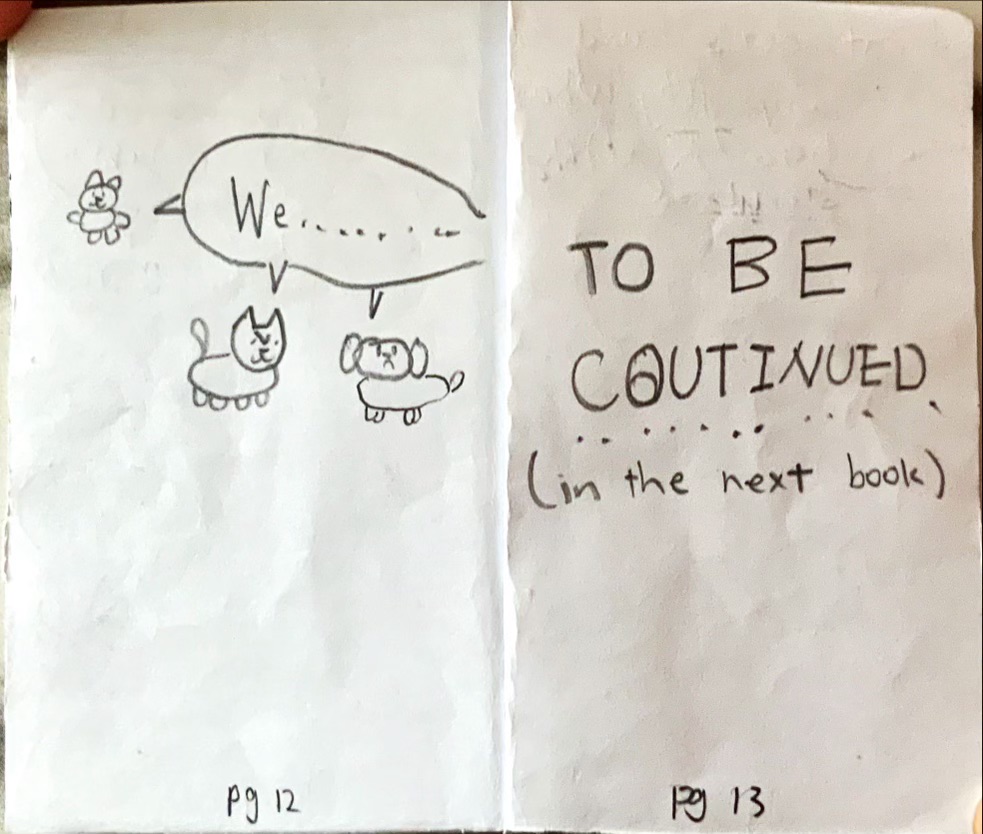 We..........
pg 12
TO BE
COUTINUED
............
(in the next book)
pg 13